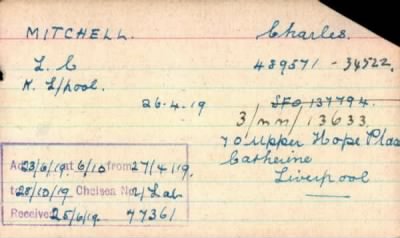 MITCHELL. Charles.
L. C 489571 - 34522.
K. L/pool.
26.4.19 SFO 137794.
3/nn/13633
70 Upper Hope Plac
Catherine
Liverpool
23/6/19 at 6/10 from 27/4/19.
to 28/10/19 Chelsea No.
Received 25/6/19 77361